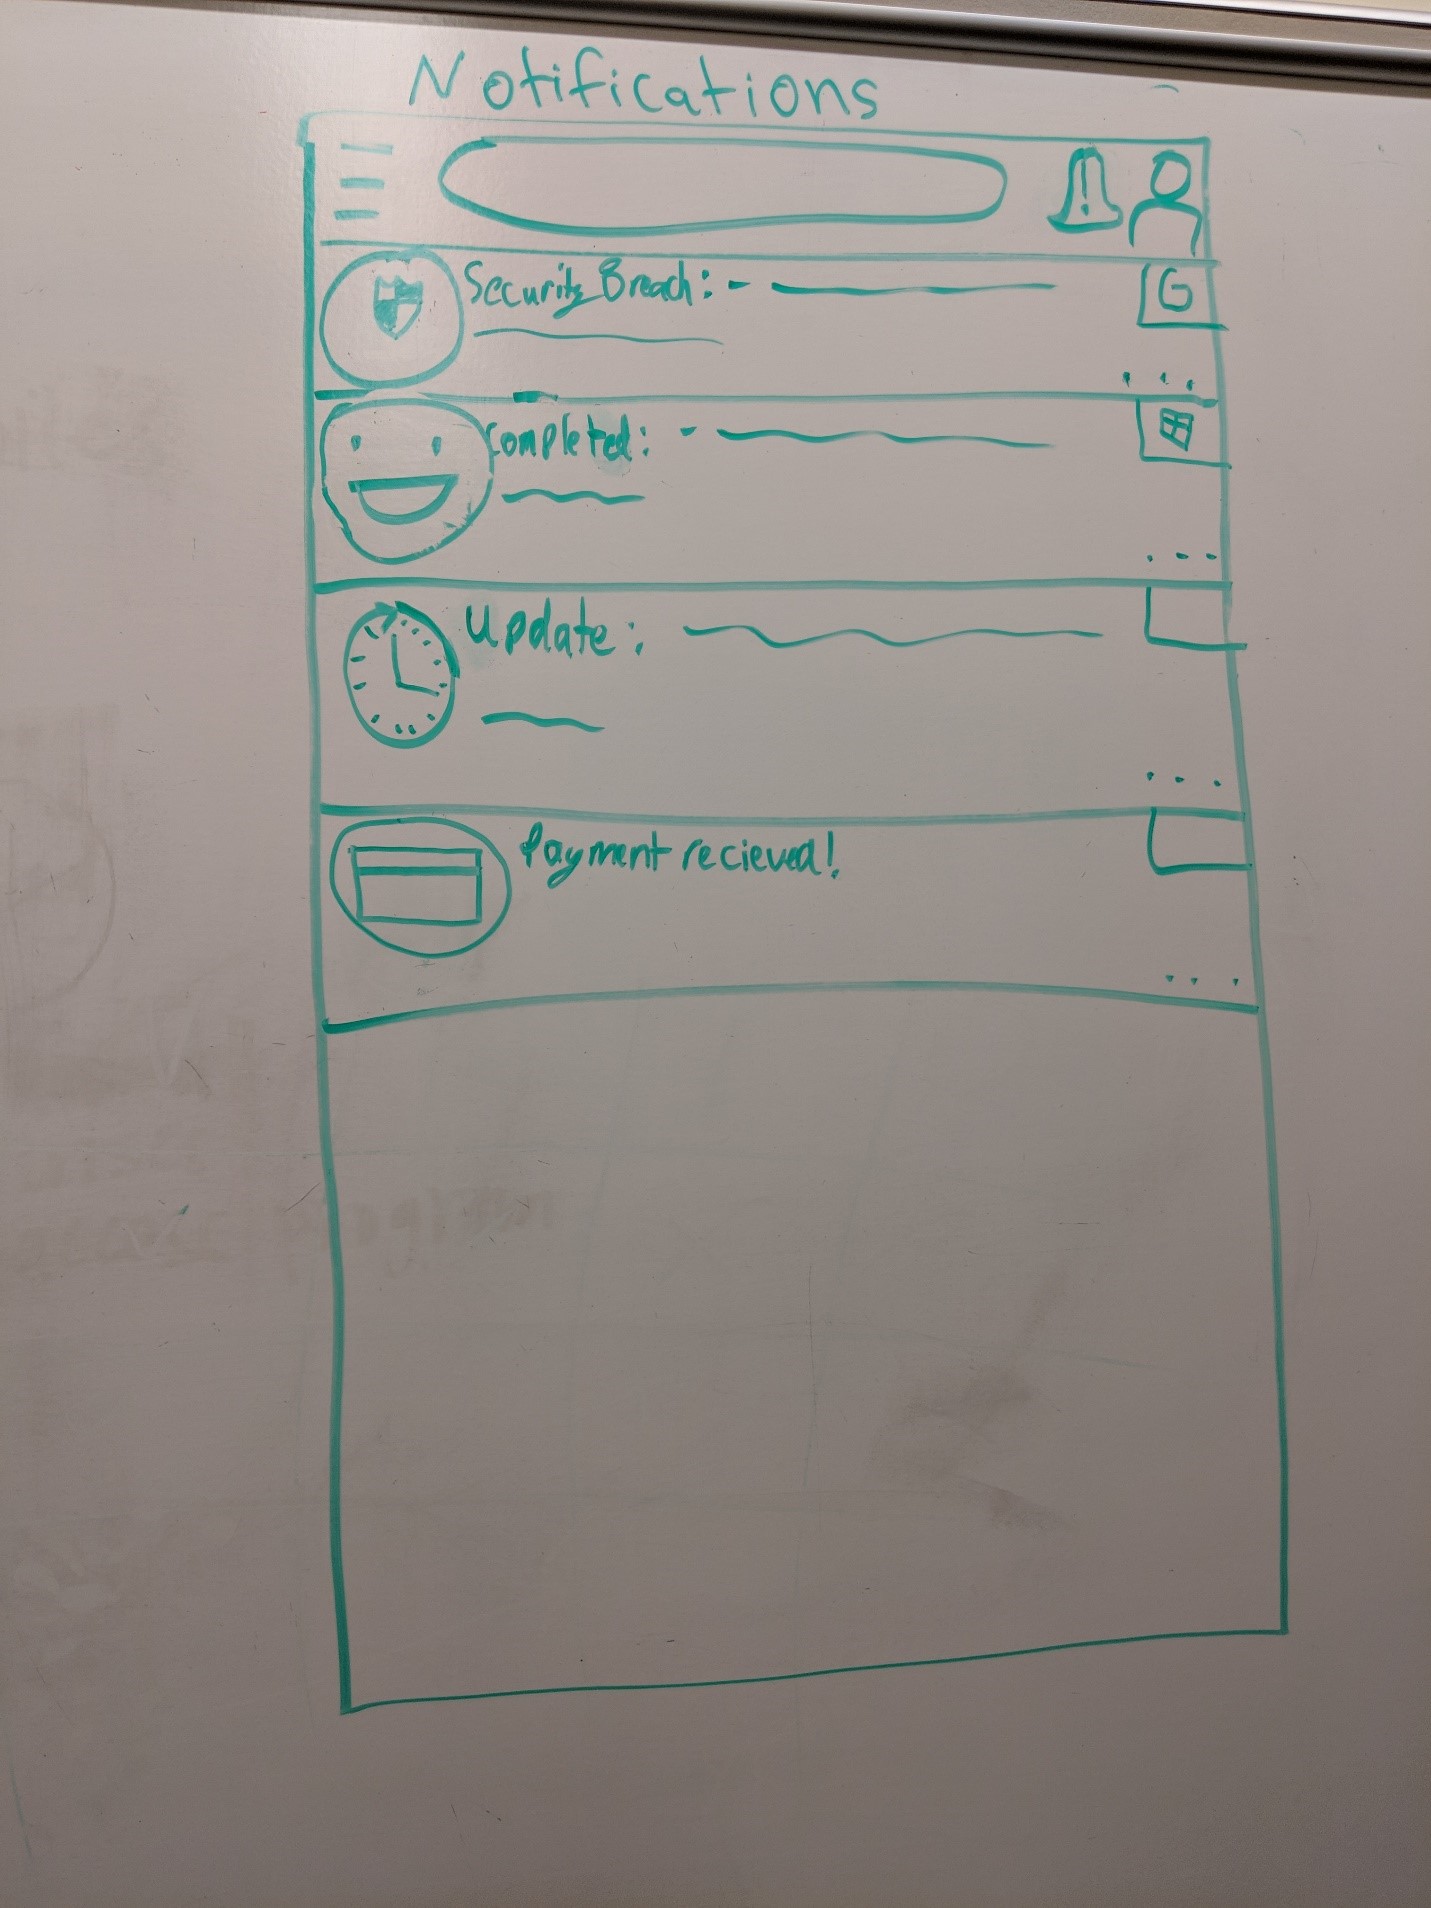 Notifications
Security Breach: -
G
Completed: -
Update:
Payment recieved!